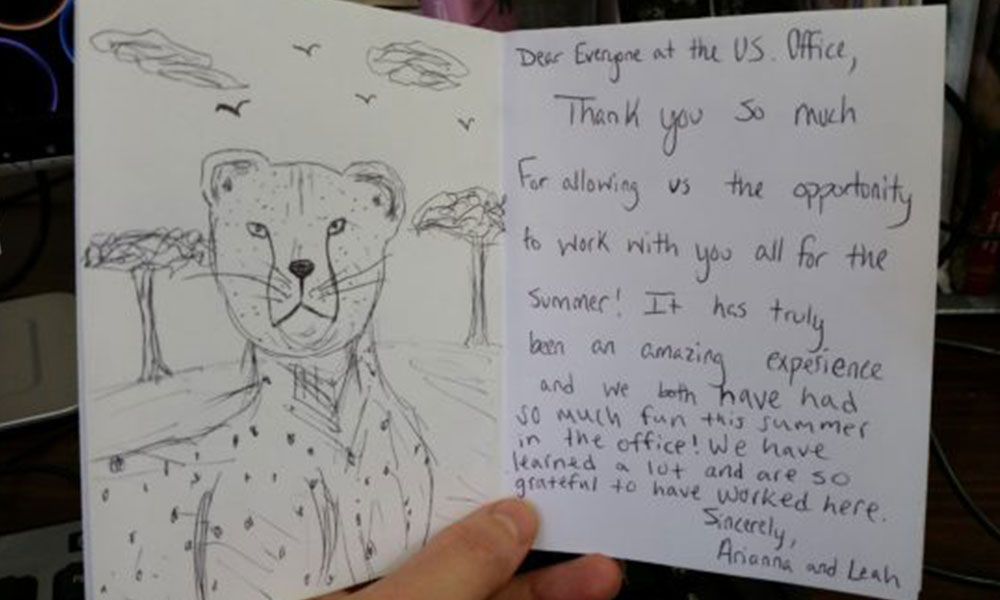 Dear Everyone at the US. Office,
Thank you so much
For allowing us the opportunity
to work with you all for the
summer! It has truly
been an amazing experience
and we both have had
so much fun this summer
in the office! We have
learned a lot and are so
grateful to have worked here.
Sincerely,
Arianna and Leah